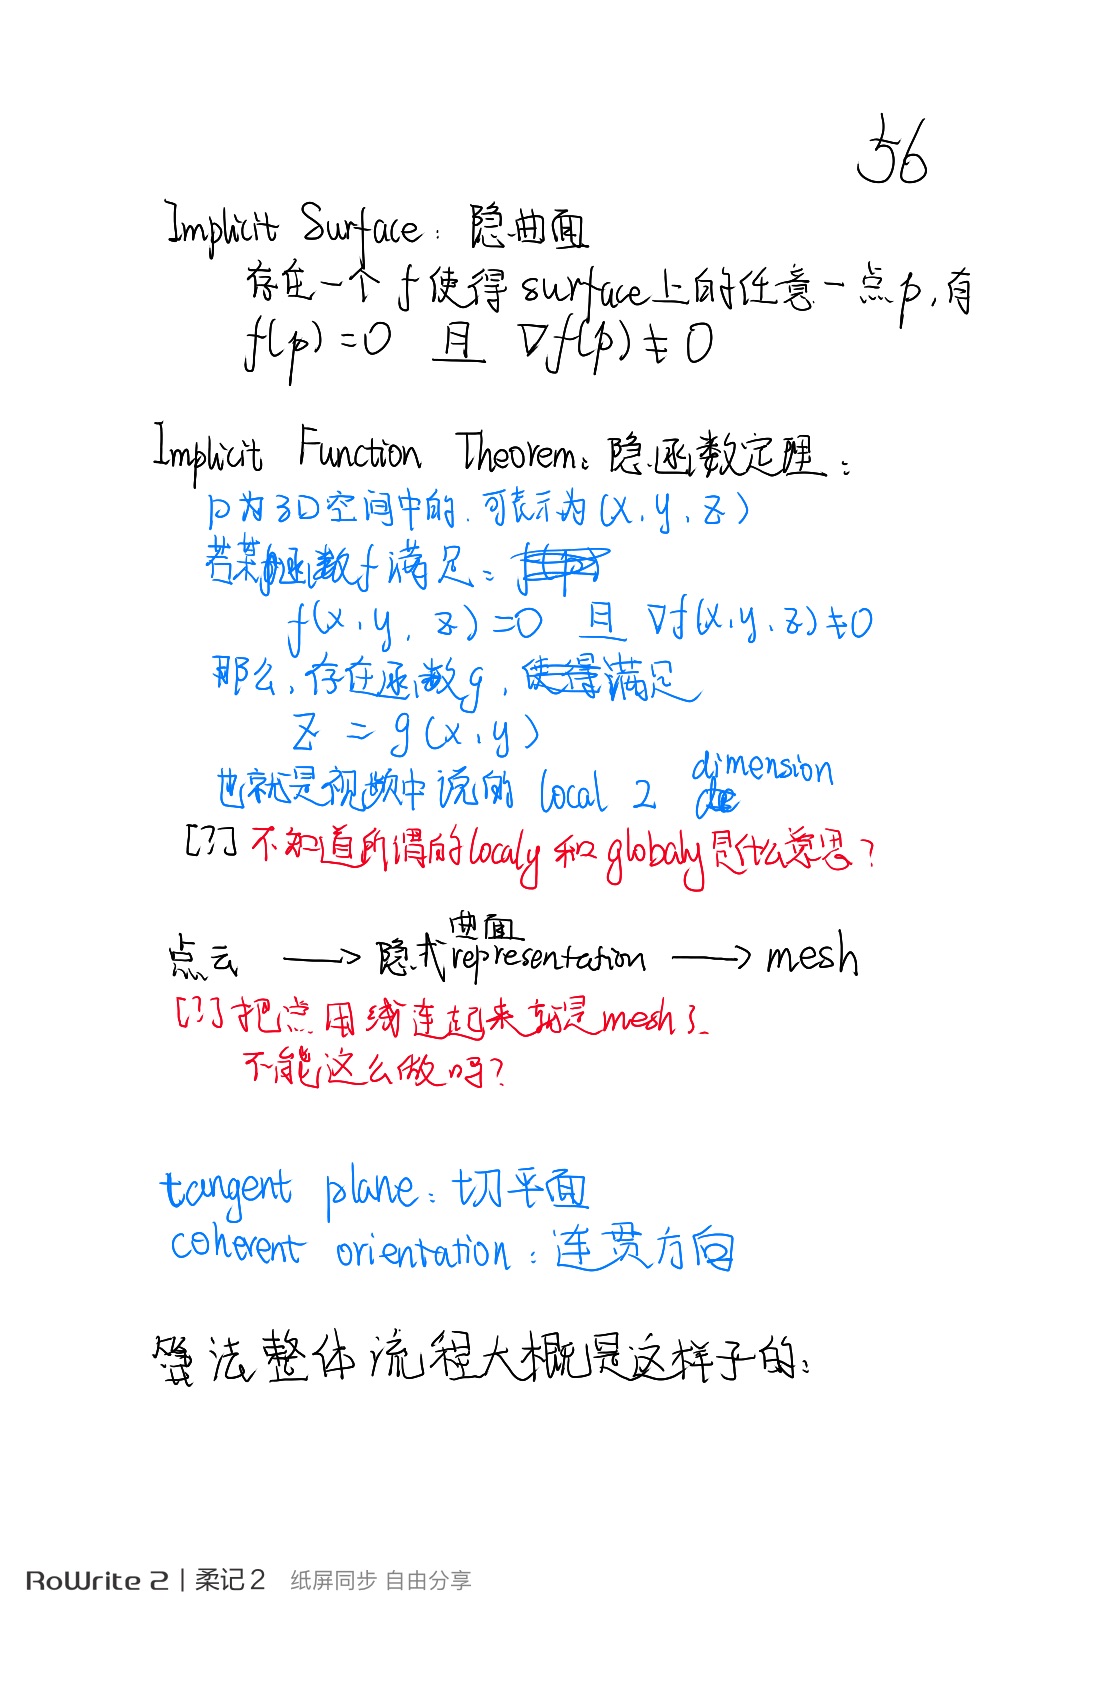 56
Implicit Surface: 隐曲面
存在一个 f 使得 surface上的任意一点p, 有
f(p) = 0 且 ∇f(p) ≠ 0
Implicit Function Theorem: 隐函数定理:
p为3D空间中的, 可表示为 (x, y, z)
若某函数f满足:
f(x, y, z) = 0 且 ∇f(x, y, z) ≠ 0
那么, 存在函数g, 使得满足
z = g(x, y)
也就是视频中说的 local 2 dimension
[?] 不知道所谓的localy和globaly是什么意思?
点云 → 隐式曲面representation → mesh
[?] 把点用线连起来就是mesh了
不能这么做吗?
tangent plane: 切平面
coherent orientation: 连贯方向
算法整体流程大概是这样子的:
RoWrite 2 | 柔记2 纸屏同步 自由分享